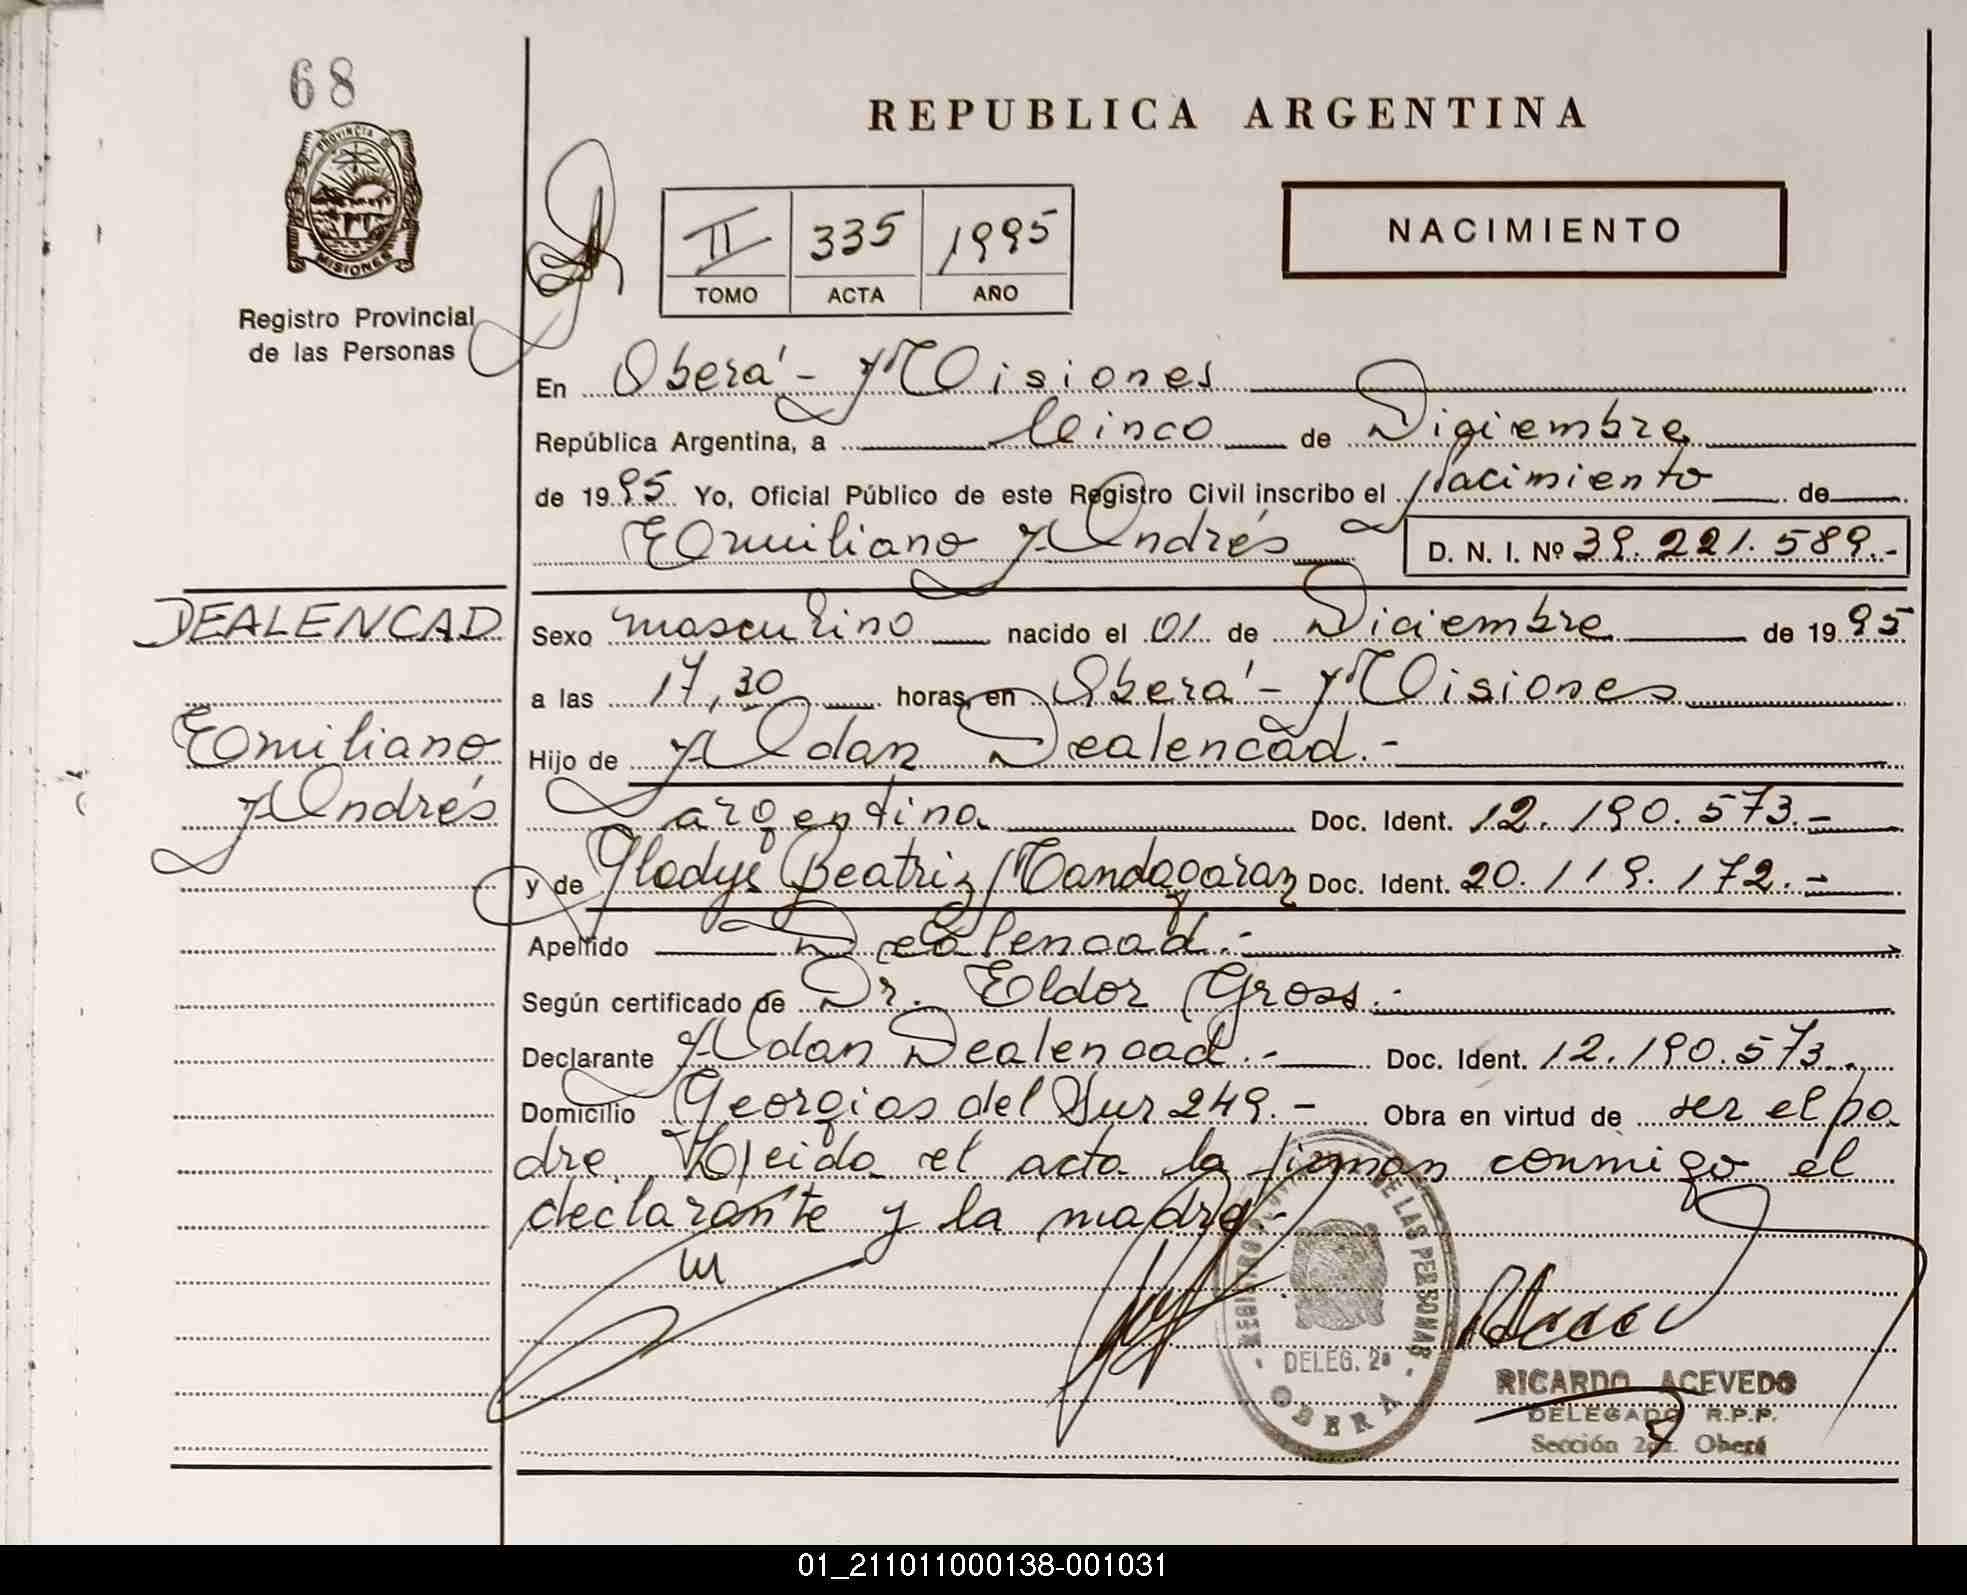 68
PROVINCIA DE
MISIONES
Registro Provincial
de las Personas
REPUBLICA ARGENTINA
II 335 1995
TOMO ACTA AÑO
NACIMIENTO
En Oberá - Misiones
República Argentina, a Cinco de Diciembre
de 1995 Yo, Oficial Público de este Registro Civil inscribo el nacimiento de
Emiliano Andrés D. N. I. Nº 39.221.589.-
DEALENCAD
Emiliano
Andrés
Sexo masculino nacido el 01 de Diciembre de 1995
a las 17,30 horas, en Oberá - Misiones
Hijo de Adan Dealencad.-
argentina Doc. Ident. 12.190.573.-
y de Gladys Beatriz Mandagaran Doc. Ident. 20.119.172.-
Apellido Dealencad.-
Según certificado de Dr. Eldor Gross.-
Declarante Adan Dealencad.- Doc. Ident. 12.190.573.-
Domicilio Georgias del Sur 249.- Obra en virtud de ser el pa
dre. Leida el acta la firman conmigo el
declarante y la madre.-
REGISTRO DE LAS PERSONAS
DELEG. 2ª
OBERA
RICARDO ACEVEDO
DELEGADO R.P.P.
Sección 2da. Oberá
01_211011000138-001031